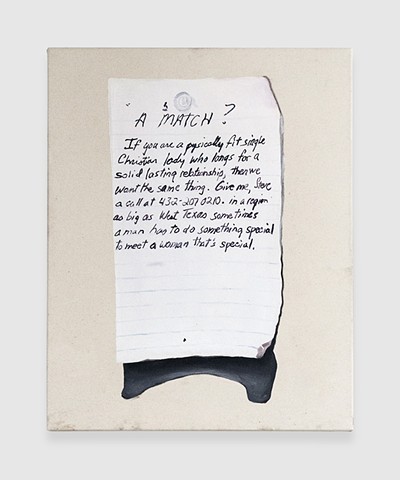 A MATCH ?
If you are a pysically fit single
Christian lady who longs for a
solid lasting relationship, then we
want the same thing. Give me, Steve
a call at 432-207 0210. in a region
as big as West Texas sometimes
a man has to do something special
to meet a woman that's special.